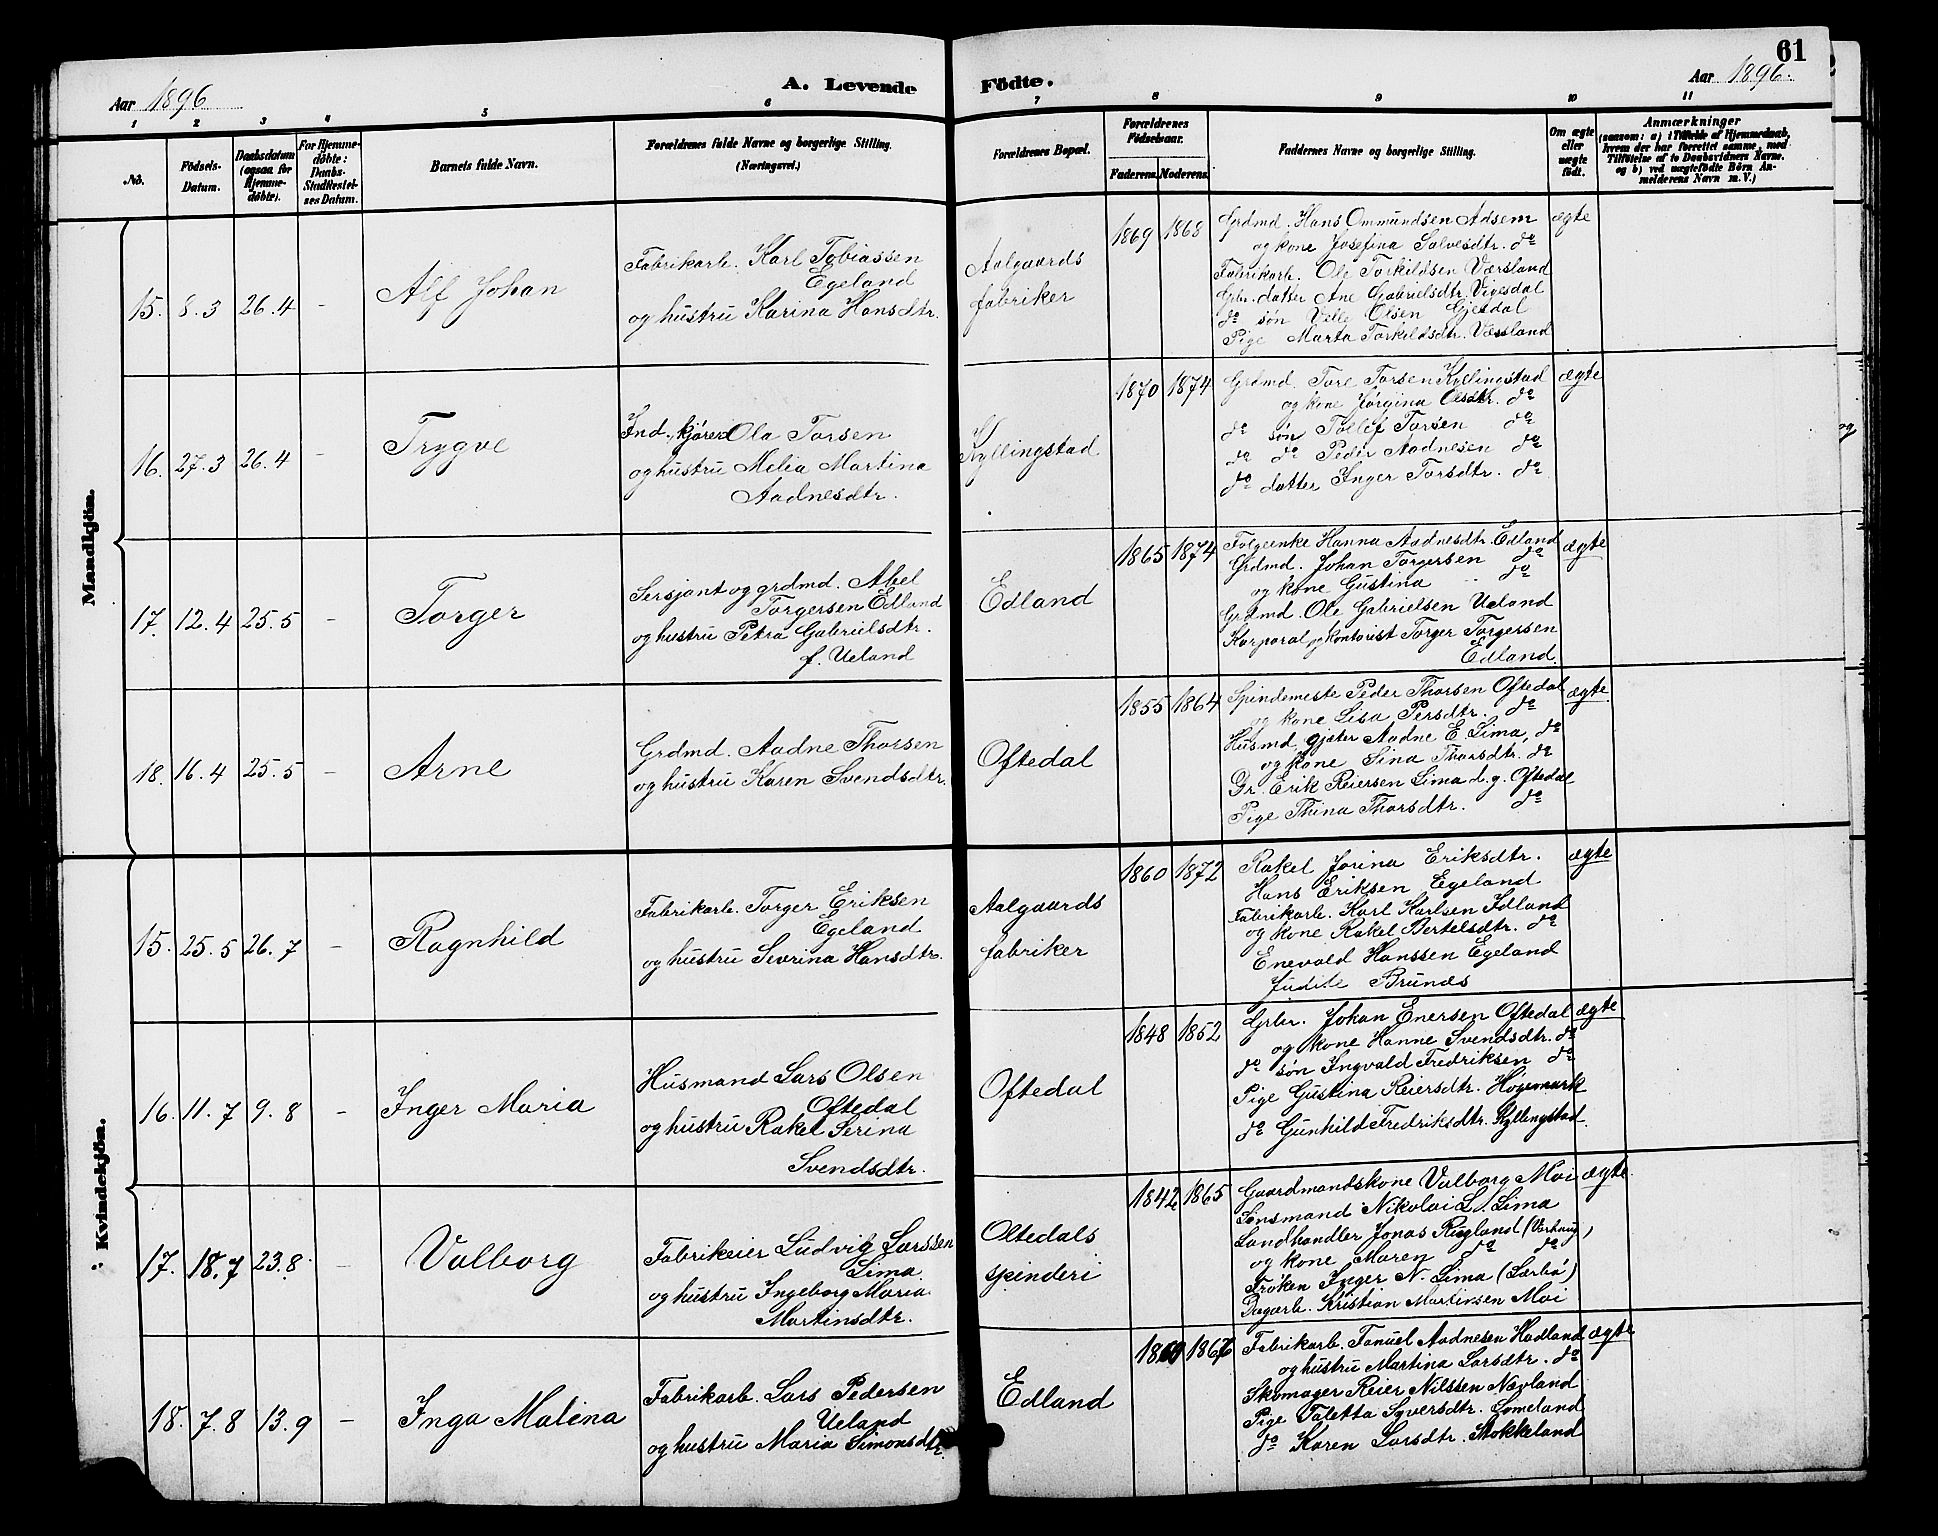 61
Aar 1896
A. Levende Födte.
Aar 1896.
1 2 3 4 5 6 7 8 9 10 11
No.
Födsels-
Datum.
Daabsdatum
(ogsaa for
Hjemme-
döbte).
For Hjemme-
döbte:
Daabs-
Stadfæstel-
ses Datum.
Barnets fulde Navn.
Forældrenes fulde Navne og borgerlige Stilling.
(Næringsvei.)
Forældrenes Bopæl.
Forældrenes
Födselsaar.
Faderens. Moderens.
Faddernes Navne og borgerlige Stilling.
Om ægte
eller
uægte
födt.
Anmærkninger
(saasom: a) i Tilfælde af Hjemmedaab,
hvem der har forrettet samme, med
Tilföielse af to Daabsvidners Navne,
og b) ved uægtefödte Börn An-
melderens Navn m. V.)
Mandkjön.
15. 8.3 26.4 - Alf Johan
Fabrikarb. Karl Tobiassen
Egeland
og hustru Karina Hansdtr.
Aalgaards
fabriker
1869 1868
Grdmd. Hans Ommundsen Adsem
og kone Josefina Salvesdtr. do
Fabrikarb. Ole Torkildsen Værsland
Grbr. datter Ane Gabrielsdtr. Vigesdal
do søn Velle Olsen Gjesdal
Pige Marta Torkildsdtr. Væsland
ægte
16. 27.3 26.4 - Trygve
Ind., kjører Ola Torsen
og hustru Melia Martina
Aadnesdtr.
Kyllingstad
1870 1874
Grdmd. Tore Torsen Kyllingstad
og kone Jørgina Olsdtr. do
do søn Tollef Torsen do
do do Peder Aadnesen do
do datter Inger Torsdtr. do
ægte
17. 12.4 25.5 - Torger
Sersjant og grdmd. Abel
Torgersen Edland
og hustru Petra Gabrielsdtr.
f. Ueland
Edland
1865 1874
Folgeenke Hanna Aadnesdtr. Edland
Grdmd. Johan Torgersen do
og kone Gustina do
Grdmd. Ole Gabrielsen Ueland
Korporal og kontorist Torger Torgersen
Edland.
ægte
18. 16.4 25.5 - Arne
Grdmd. Aadne Thorsen
og hustru Karen Svendsdtr.
Oftedal
1855 1864
Spindemeste Peder Thorsen Oftedal
og kone Lisa Persdtr. do
Husmd, gjæter Aadne E. Lima, do
og kone Sina Thorsdtr. do
Gr. Erik Reiersen Lima d.g. Oftedal
Pige Thina Thorsdtr. do
ægte.
Kvindekjön.
15. 25.5 26.7 - Ragnhild
Fabrikarb. Torger Eriksen
Egeland
og hustru Sevrina Hansdtr.
Aalgaards
fabriker
1860 1872
Rakel Jorina Eriksdtr.
Hans Eriksen Egeland
Fabrikarb. Karl Karlsen Idland
og kone Rakel Bertelsdtr. do
Enevald Hanssen Egeland
Judite Brunes
ægte
16. 11.7 9.8 - Inger Maria
Husmand Lars Olsen
Oftedal
og hustru Rakel Serina
Svendsdtr.
Oftedal
1848 1852
Grbr. Johan Enersen Oftedal
og kone Hanne Svendsdtr. do
do søn Ingvald Fredriksen do
Pige Gustina Reiersdtr. Högemark
do Gunhild Fredriksdtr. Kyllingstad.
ægte
17. 18.7 23.8. - Valborg
Fabrikeier Ludvig Larssen
Lima
og hustru Ingeborg Maria
Martinsdtr.
Oltedals
spinderi
1842 1865
Gaardmandskone Valborg Moi
Lønsmand Nikolai L. Lima
Landhandler Jonas Rugland (Varhaug)
og kone Maren do do
Frøken Inger N. Lima (Særbø)
Dagarb. Kristian Martinsen Moi
ægte
18. 7.8 13.9 - Inga Malena
Fabrikarb. Lars Pedersen
Ueland
og hustru Maria Simonsdtr.
Edland
1869 1867
Fabrikarb. Tanuel Aadnesen Hadland
og hustru Martina Larsdtr. do
Skomager Reier Nilssen Nævland
Pige Taletta Syversdtr. Lomeland
do Karen Larsdtr. Stokkeland
ægte